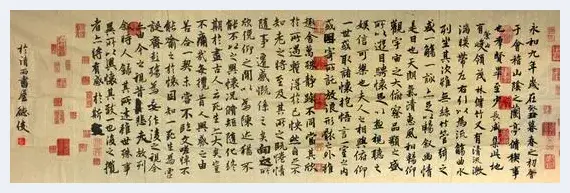 永和九年歲在癸丑暮春之初會
于會稽山陰之蘭亭脩稧事
也群賢畢至少長咸集此地
有崇山峻領茂林脩竹又有清流激
湍暎帶左右引以為流觴曲水
列坐其次雖無絲竹管弦之
盛一觴一詠亦足以暢敘幽情
是日也天朗氣清惠風和暢仰
觀宇宙之大俯察品類之盛
所以遊目騁懷足以極視聽之
娛信可樂也夫人之相與俯仰
一世或取諸懷抱悟言一室之內
或因寄所託放浪形骸之外雖
趣舍萬殊靜躁不同當其欣
於所遇暫得於己怏然自足不
知老之將至及其所之既惓情
隨事遷感慨係之矣向之所欣
俛仰之間以為陳迹猶不
能不以之興懷況脩短隨化終
期於盡古人云死生亦大矣豈
不痛哉每攬昔人興感之由
若合一契未嘗不臨文嗟悼不
能喻之於懷固知一死生為虛
誕齊彭殤為妄作後之視今
亦由今之視昔悲夫故列
敘時人錄其所述雖世殊事
異所以興懷其致一也後之攬
者亦將有感於斯文
於清雨書屋